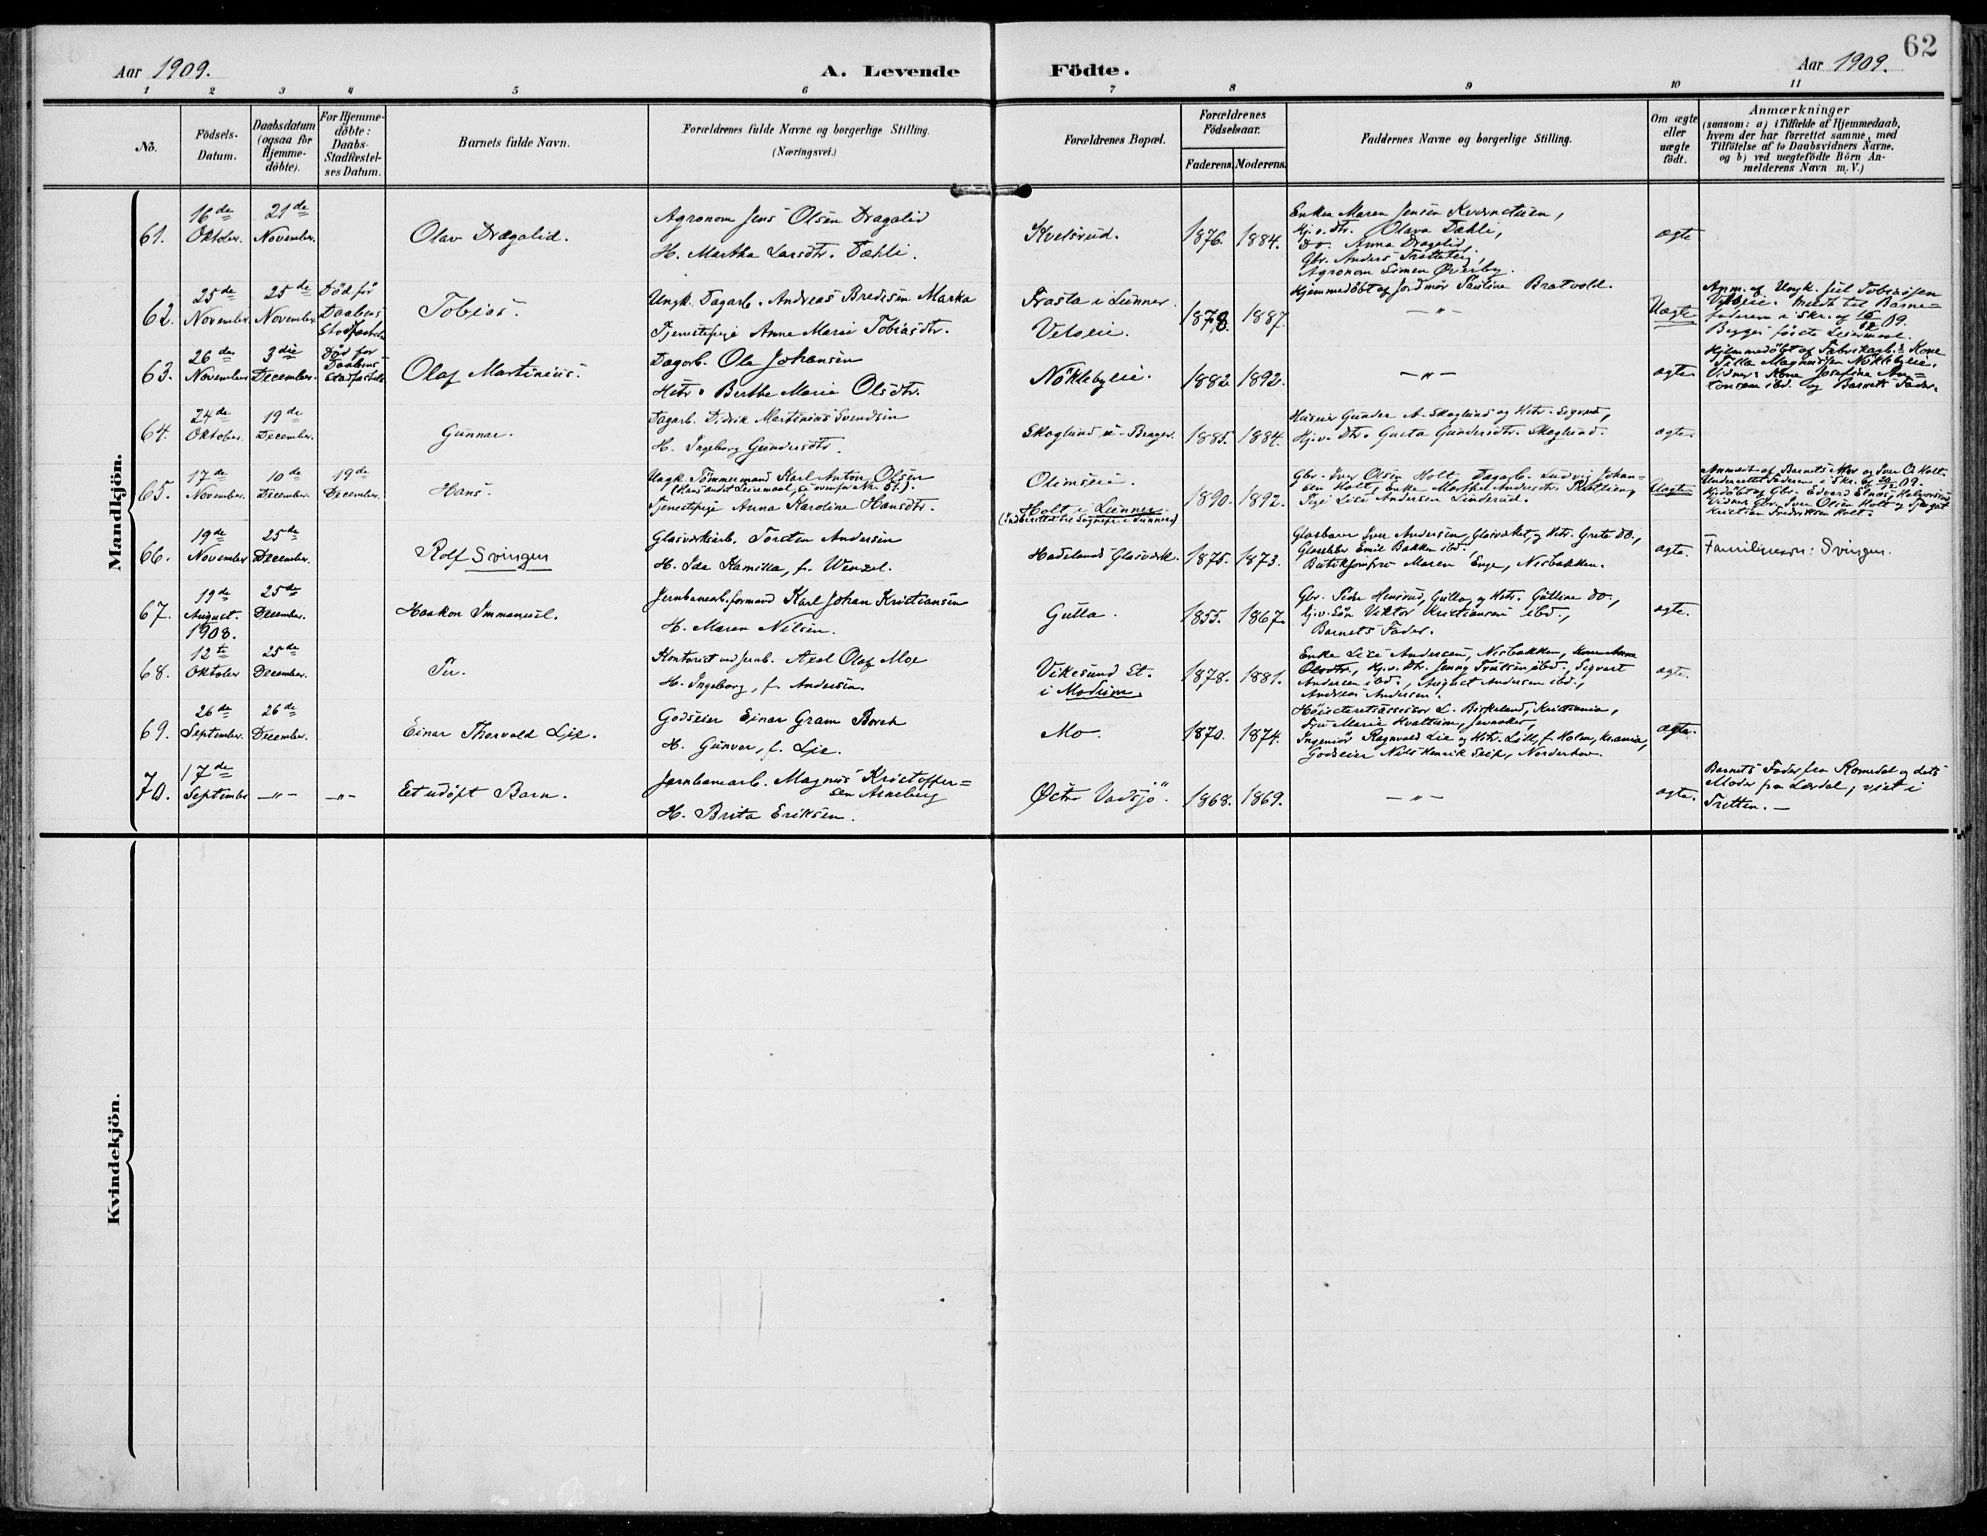 62
Aar 1909. A. Levende Födte. Aar 1909.
1 2 3 4 5 6 7 8 9 10 11
No.
Födsels-
Datum.
Daabsdatum
(ogsaa for
Hjemme-
döbte).
For Hjemme-
döbte:
Daabs-
Stadfæstel-
ses Datum.
Barnets fulde Navn.
Forældrenes fulde Navne og borgerlige Stilling.
(Næringsvei.)
Forældrenes Bopæl.
Forældrenes
Födselsaar.
Faderens. Moderens.
Faddernes Navne og borgerlige Stilling.
Om ægte
eller
uægte
födt.
Anmærkninger
(saasom: a) i Tilfælde af Hjemmedaab,
hvem der har forrettet samme, med
Tilföielse af to Daabsvidners Navne.
og b) ved uægtefödte Börn An-
melderens Navn m. V.)
Mandkjön.
61.
16de
Oktober.
21de
November.
Olav Dragalid.
Agronom Jens Olsen Dragalid
H. Martha Larsdtr. Dæhli.
Kvelsrud.
1876. 1884.
Enken Maren Jensen
Gbr. Anders
Agronom Simen Överby.
ægte
62.
25de
November.
25de
November.
Död för
Daabens
Stadfæstelse
Tobias.
Ungk. Dagarb. Andreas Bredesen Marka
Tjenestepige Anne Marie Tobiasdtr.
Frasta i Lunner.
Velseie.
1878 1887.
Hjemmedöbt af Jordmor Pauline Bratvold.
— " —
Uægte
Begges förste Leiermaal.
63.
26de
November.
3die
December.
Död for
Daabens
Stadfæstelse
Olaf Martinius.
Dagarb. Ole Johansen
Hstr. Berthe Marie Olsdtr.
Nöklebyeie.
1882. 1892.
— " —
ægte.
Hjemmedöbt af Fabrikarb.s Kone
Vidner: Kone Josefine An-
tonsen ibd. og Barnets Fader.
64.
24de
Oktober.
19de
December.
Gunnar.
Dagarb. Didrik Martinius Svendsen
H. Ingeborg Gundersdtr.
Skoglund u. Brager.
1885. 1884.
Huseier Gunder A. Skoglund og Hstr. Sigrid,
Hj.v. Dtr. Gusta Gundersdtr. Skoglund.
ægte.
65.
17de
November.
10de
December.
19de
December.
Hans.
Ungk. Tömmermand Karl Anton Olsen
Tjenestepige Anna Karoline Hansdtr.
Olimseie.
Holt i Lunner
1890. 1892.
Gbr. Iver Olsen Holt, Dagarb. Ludvig Johan-
Pige Lise Andersen Linderud.
Uægte
Anmeldt af Barnets Mor og Iver O. Holt.
Kristian Fredriksen Holt.
66.
19de
November.
25de
December.
Rolf Svingen
Glasværksarb. Torsten Andersen
H. Ida Kamilla, f. Wenzel.
Hadelands Glasværk.
1875. 1873.
Glasbærer Iver Andersen, Glasværket, og Hstr. Grete do.,
Glassliber Emil Bakken ibd.
Butikjomfru Maren Enge, Nesbakken.
ægte.
Familienavn: Svingen.
67.
19de
August.
1908.
25de
December.
Haakon Immanuel.
Jernbanearb.formand Karl Johan Kristiansen
H. Maren Nilsen.
Gulla.
1855. 1867.
Gbr. Peder Hensrud, Gulla, og Hstr. Gulline do.,
Hj.v. Sön Viktor Kristiansen ibd.,
Barnets Fader.
ægte.
68.
12te
Oktober
25de
December.
Per.
Kontorist ved Jernb. Axel Olaf Moe
H. Ingeborg, f. Andersen.
Vikesund St.
i Modum.
1878. 1881.
Enke Lise Andersen, Nesbakken,
Hj.v. Dtr. Jenny ibd., Sigvart
Andersen ibd., August Andersen ibd.,
Andreas Andersen.
ægte.
69.
26de
September.
26de
December.
Einar Thorvald Lie.
Godseier Einar Gram Borch
H. Gunvor, f. Lie.
Mo.
1870. 1874.
Höiesteretsassessor L. Birkeland, Kristiania,
Fru Marie Kvallum, Jevnaker,
Ingeniör Ragnvald Lie og Hstr. Lilli, f. Holm, Krania,
Godseier Nils Henrik Seip, Norderhov.
ægte.
70.
17de
September
— " —
— " —
Et udöpt Barn.
Jernbanearb. Magnus Kristoffer-
sen Arneberg
H. Brita Eriksen.
Östre Vadsjö.
1868. 1869.
— " —
ægte.
Barnets Fader fra Romedal og dets
Moder fra Lærdal, viet i
Tretten. —
Kvindekjön.